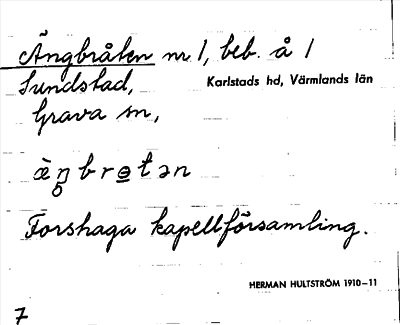 Ängbråten nr 1, beb. å 1
Sundstad, Karlstads hd, Värmlands län
Grava sn,
Forshaga kapellförsamling.
HERMAN HULTSTRÖM 1910–11
7